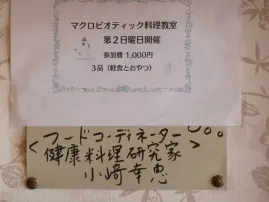 マクロビオティック料理教室
第2日曜日開催
参加費 1,000円
3品（軽食とおやつ）
フードコ・ディネーター
健康料理研究家
小崎幸恵